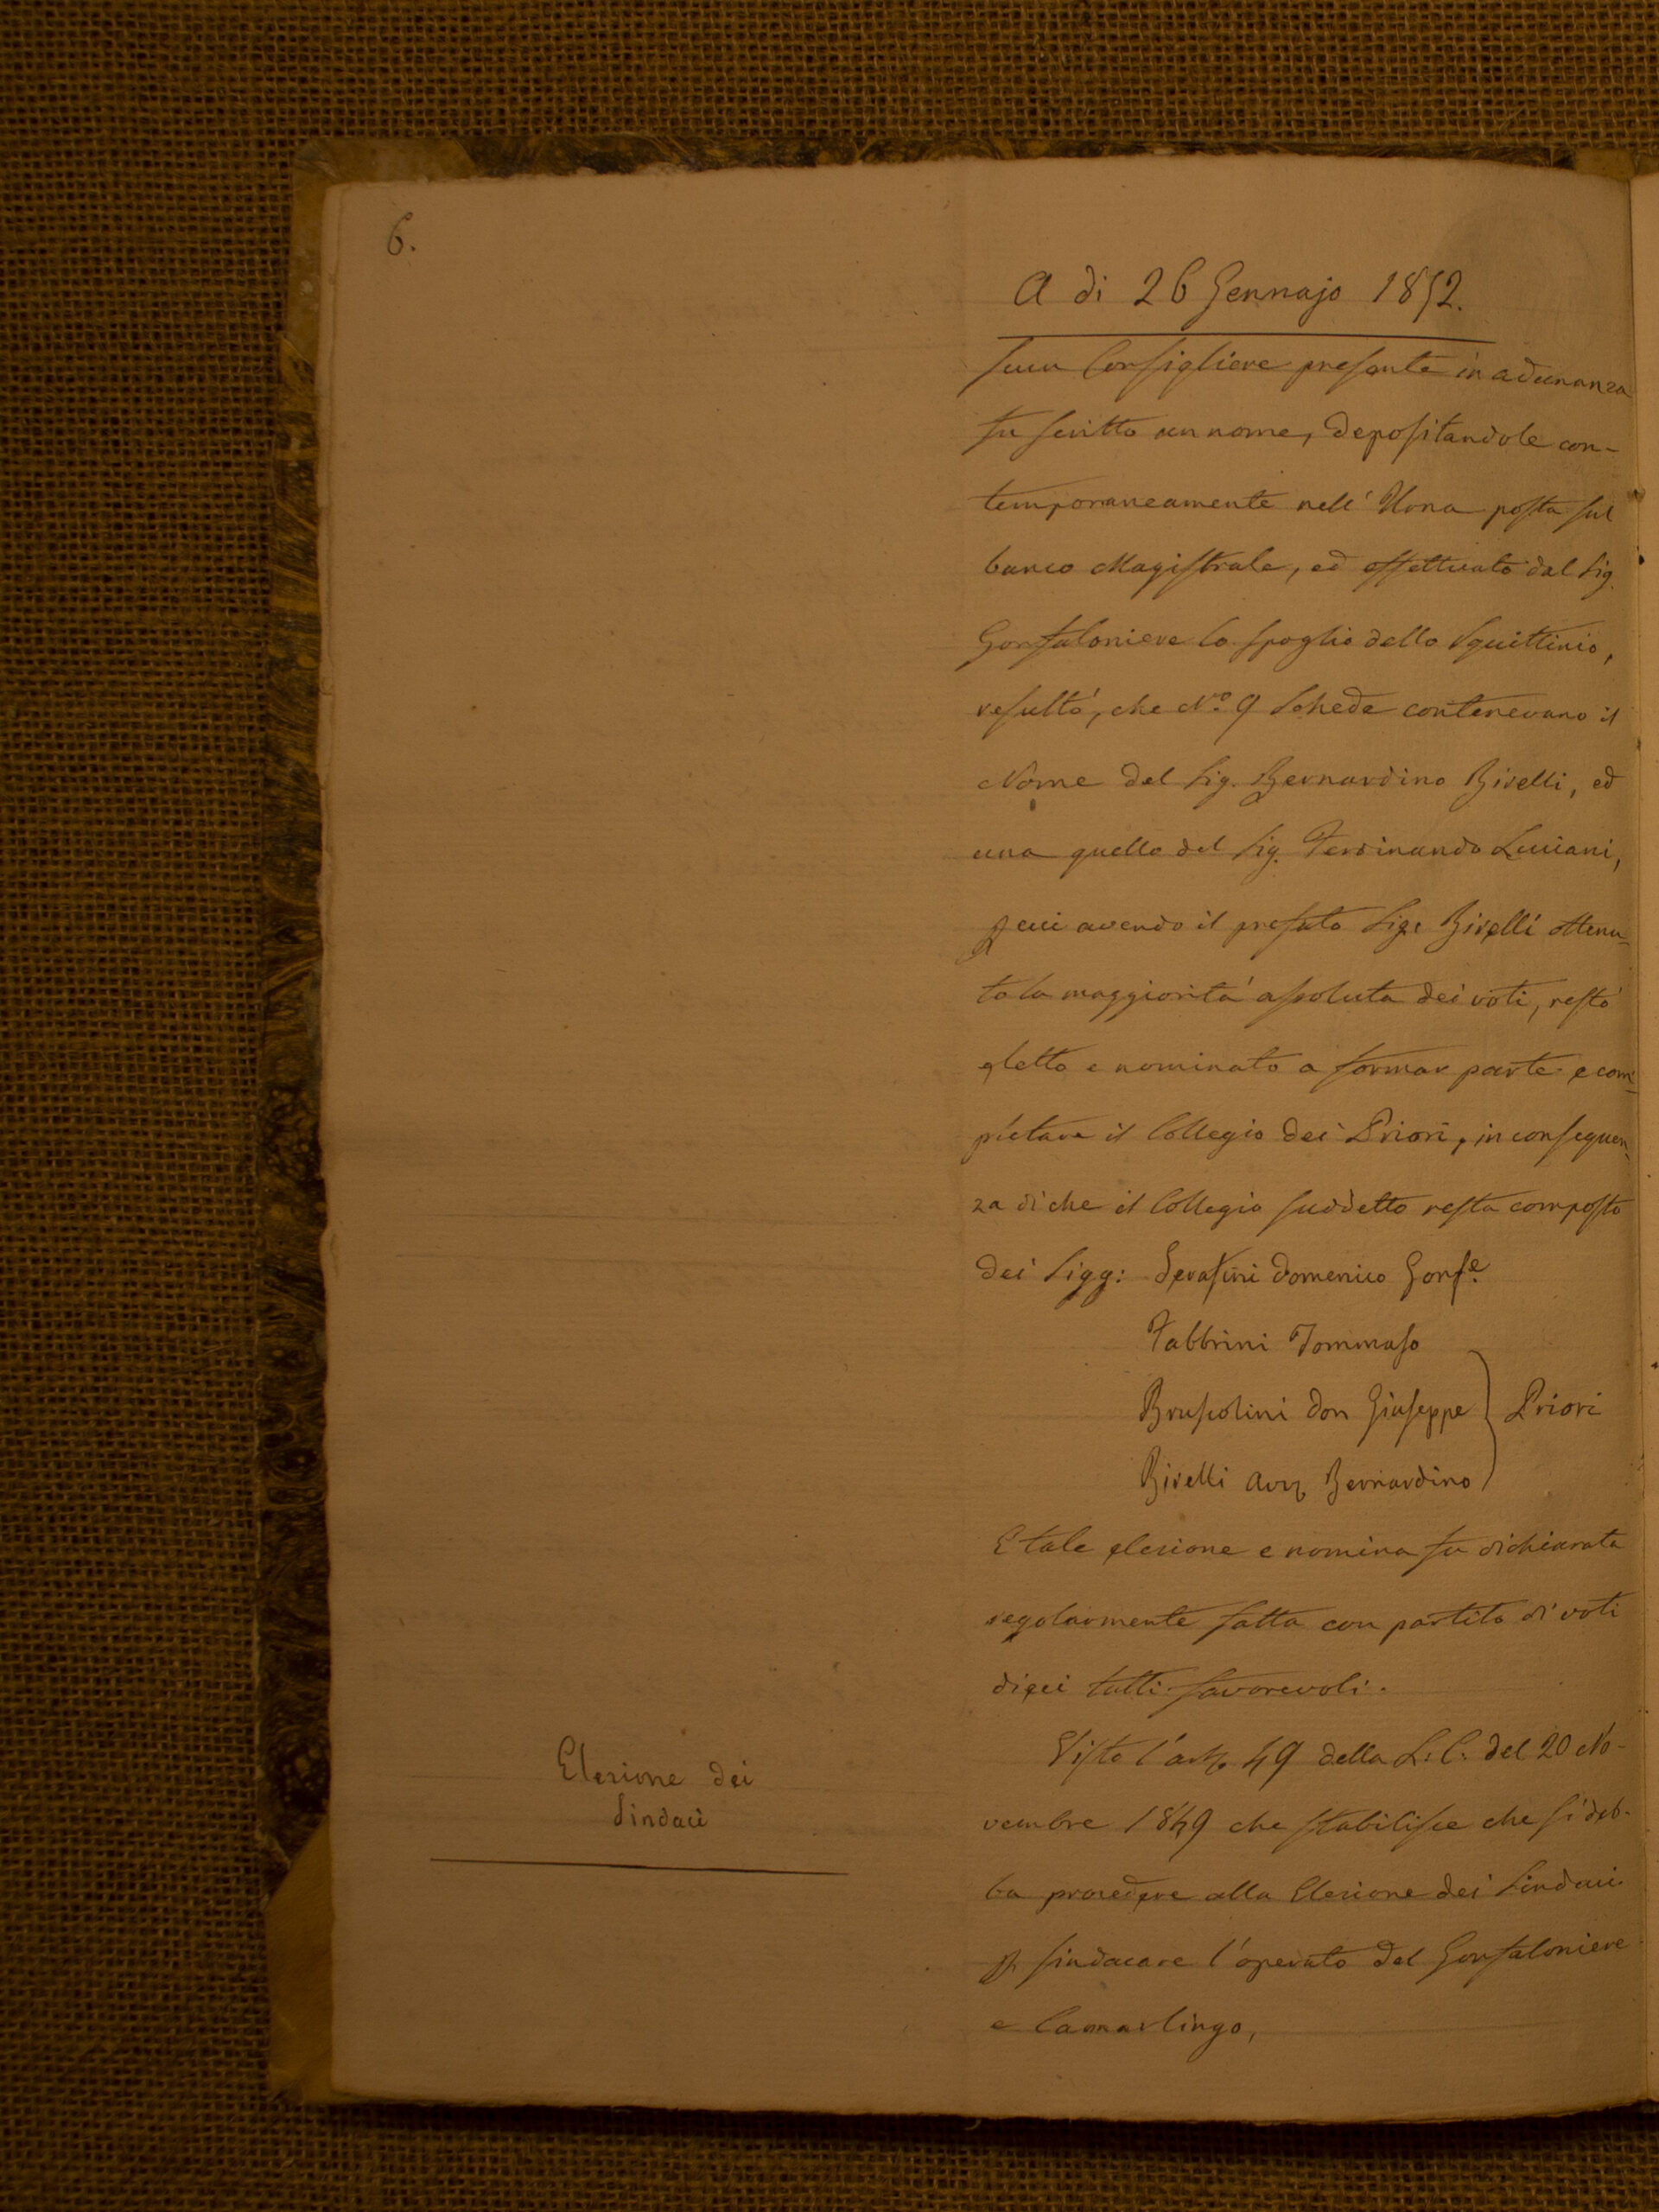 6.
A di 26 Gennajo 1852.
scun Consigliere presente in adunanza
fu scritto un nome, depositandole con-
temporaneamente nell' Urna posta sul
banco Magistrale, ed effettuato dal Sig.
Gonfaloniere lo spoglio dello Squittinio,
resultò, che N.º 9 Schede contenevano il
Nome del Sig. Bernardino Birelli, ed
una quello del Sig. Ferdinando Luciani,
p cui avendo il prefato Sig. Birelli ottenu-
to la maggiorità assoluta dei voti, restò
eletto e nominato a formar parte e com-
pletare il Collegio dei Priori, in conseguen-
za di che il Collegio suddetto resta composto
dei Sigg: Serafini Domenico Gonf.e
Fabbrini Tommaso
Bruscolini Don Giuseppe } Priori
Birelli Bernardino
E tale elezione e nomina fu dichiarata
regolarmente fatta con partito di voti
dieci tutti favorevoli.
Elezione dei
Sindaci
Visto l'art 49 della L. C. del 20 No-
vembre 1849 che stabilisce che si deb-
ba procedere alla Elezione dei Sindaci
p. sindacare l'operato del Gonfaloniere
e Camarlingo,